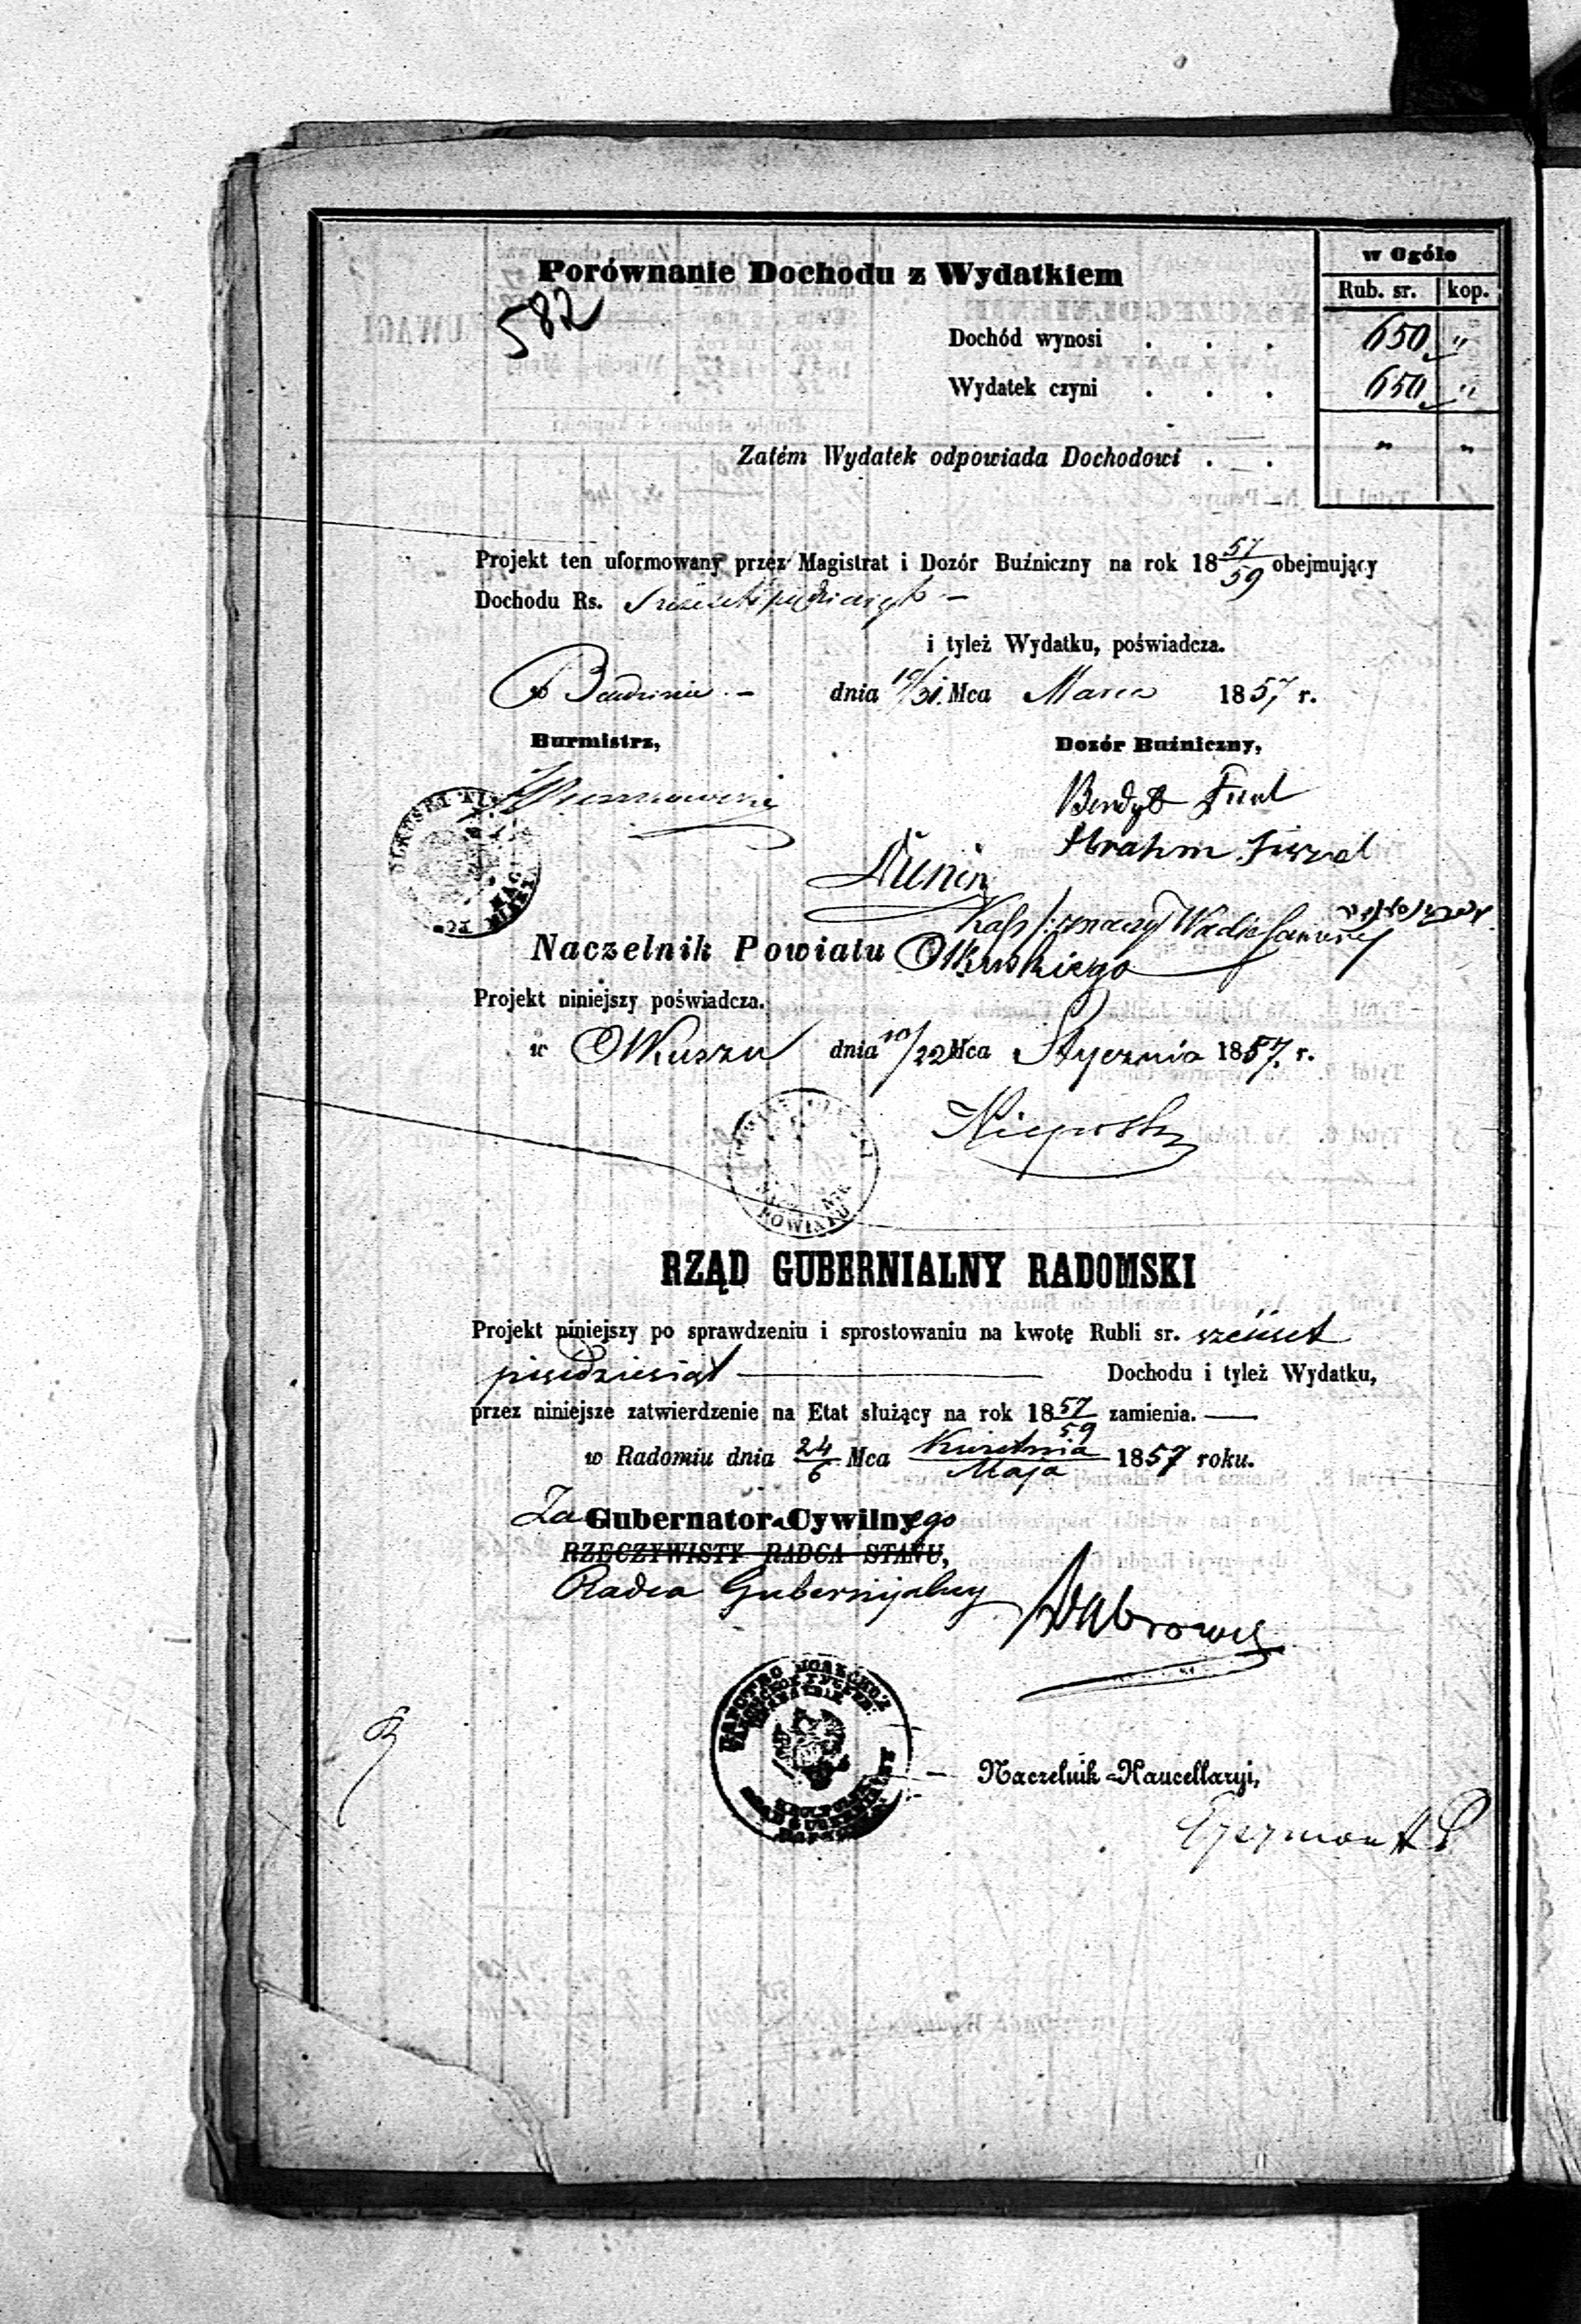 w Ogóle
Porównanie Dochodu z Wydatkiem
Rub. sr. kop.
582
Dochód wynosi . . . 650 "
Wydatek czyni . . . 650 "
Zatém Wydatek odpowiada Dochodowi . . " "
Projekt ten uformowany przez Magistrat i Dozór Buźniczny na rok 18 57/59 obejmujący
Dochodu Rs.
i tyleż Wydatku, poświadcza.
w Bendzinie - dnia 19/31 Mca Marca 1857 r.
Burmistrz, Dozór Buźniczny,
Abrahm
Naczelnik Powiatu Olkuskiego
Projekt niniejszy poświadcza.
w Olkuszu dnia 10/22 Mca Stycznia 1857 r.
NACZELNIK
POWIATU
RZĄD GUBERNIALNY RADOMSKI
Projekt niniejszy po sprawdzeniu i sprostowaniu na kwotę Rubli sr. sześćset
pięćdziesiąt — Dochodu i tyleż Wydatku,
przez niniejsze zatwierdzenie na Etat służący na rok 18 57/59 zamienia. —
w Radomiu dnia 24/6 Mca Kwietnia/Maja 1857 roku.
Za Gubernatora Cywilnego
RZECZYWISTY RADCA STANU,
Radca Gubernijalny
Naczelnik Kancellaryi,